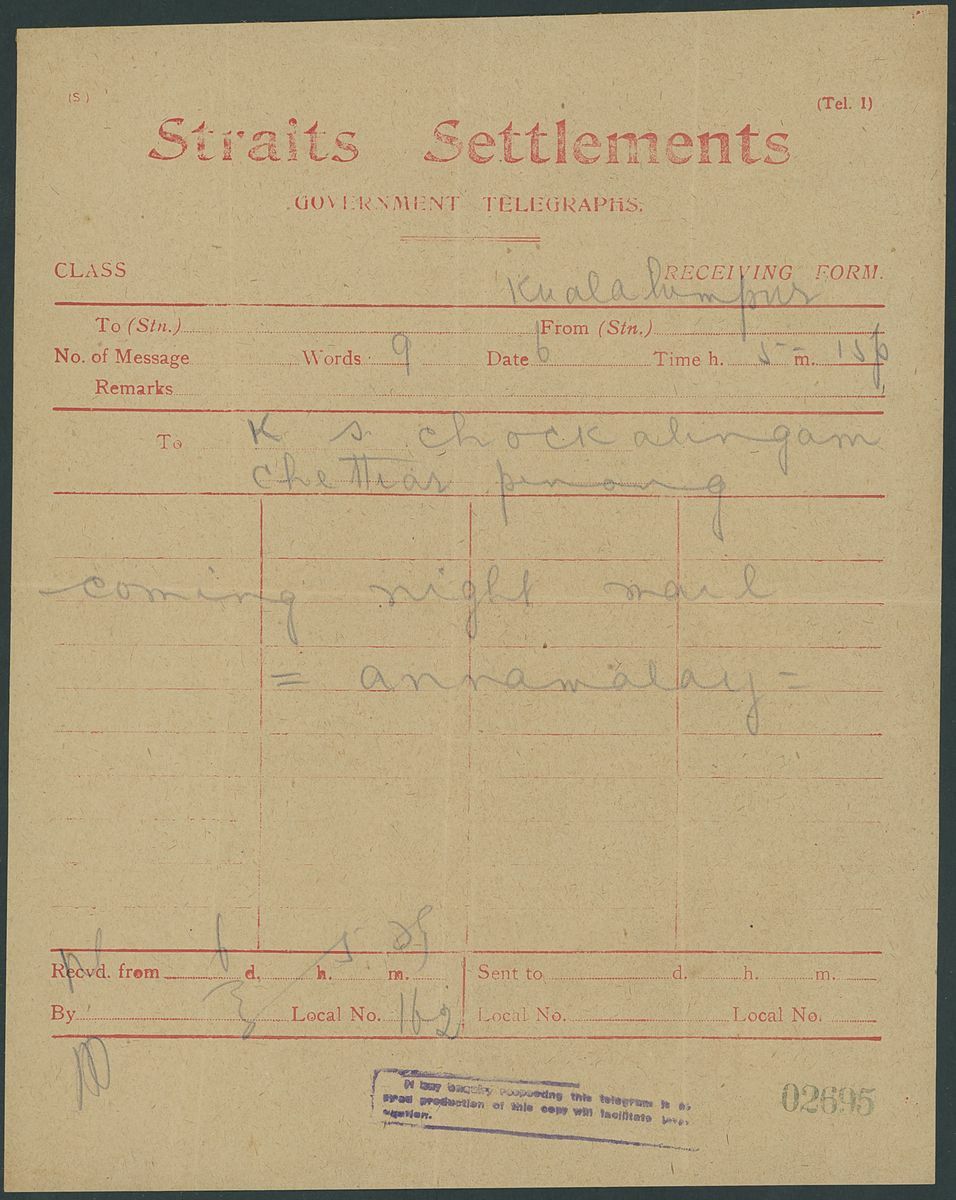 (S)
(Tel. 1)
Straits Settlements
GOVERNMENT TELEGRAPHS.
CLASS RECEIVING FORM.
Kuala lumpur
To (Stn.) From (Stn.)
No. of Message Words 9 Date 6 Time h. 5 m. 15p
Remarks
To K s chockalingam
chettiar penang
coming night mail
= annamalay =
Recvd. from 6 d. h. 5 m. 25
Sent to d. h. m.
By Local No. 162
Local No. Local No.
If any enquiry respecting this telegram is
production of this copy will facilitate
02695